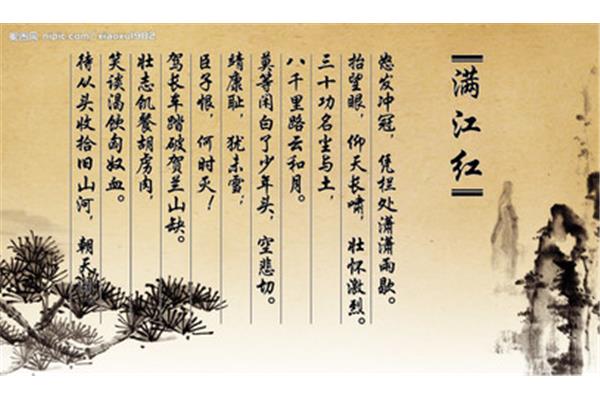 昵图网 nipic.com/xiaoxu1982
满江红
怒发冲冠，凭栏处潇潇雨歇。
抬望眼，仰天长啸，壮怀激烈。
三十功名尘与土，
八千里路云和月。
莫等闲白了少年头、空悲切。
靖康耻，犹未雪；
臣子恨，何时灭！
驾长车踏破贺兰山缺。
壮志饥餐胡虏肉，
笑谈渴饮匈奴血。
待从头收拾旧山河，朝天